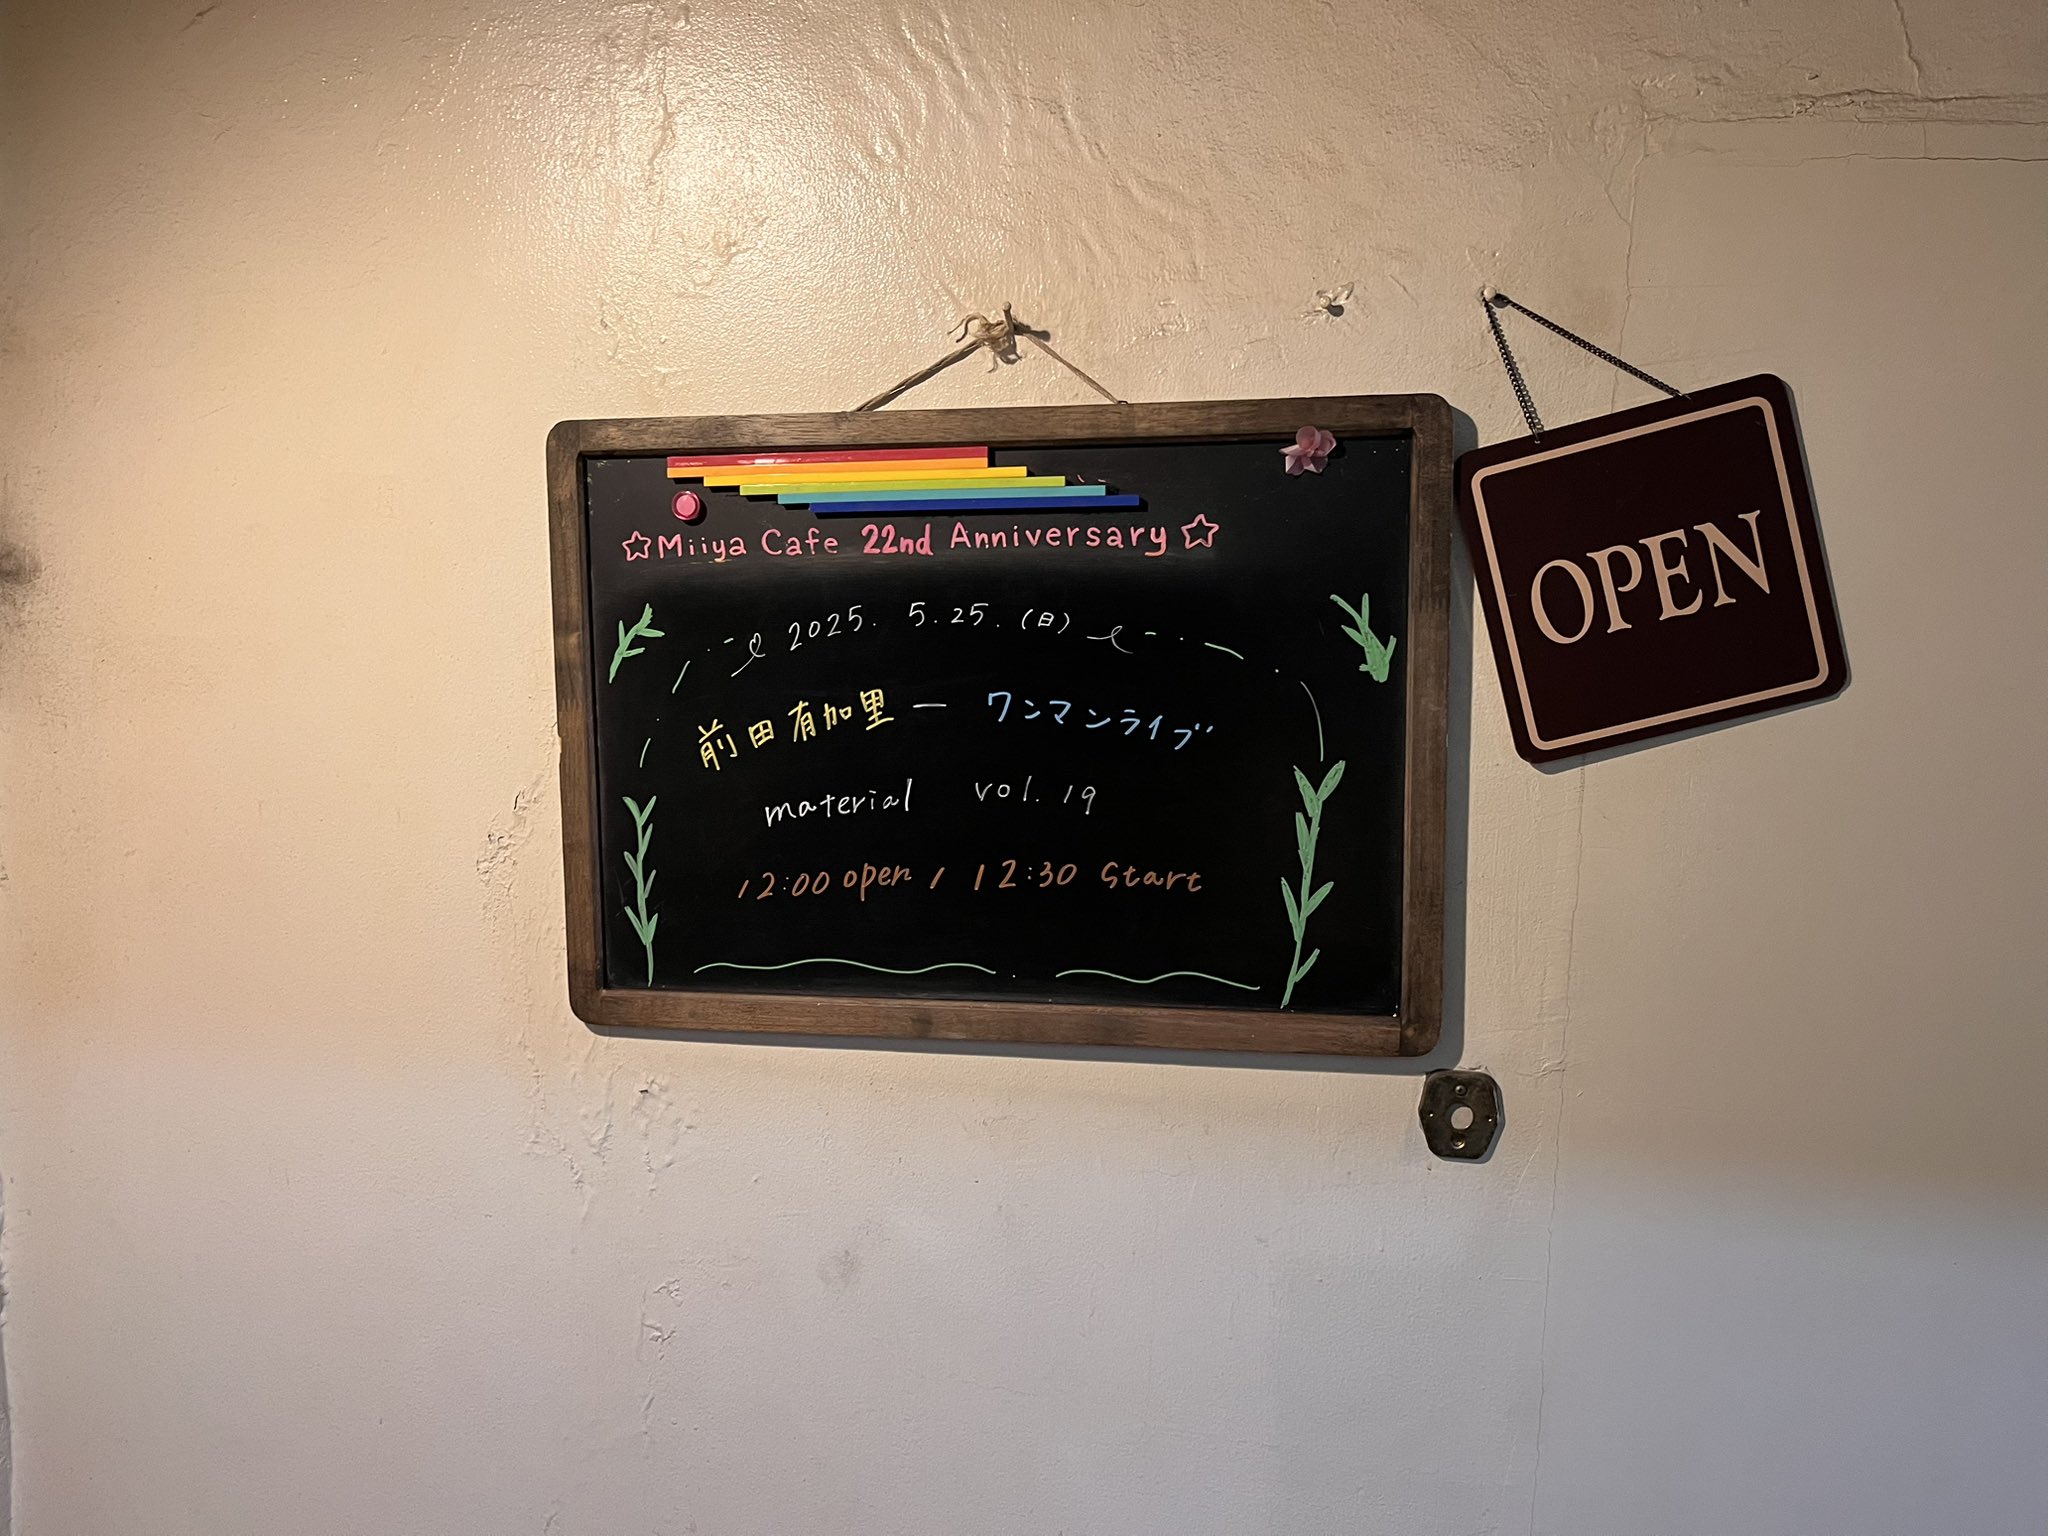 ☆Miiya Cafe 22nd Anniversary☆
2025. 5.25.(日)
前田有加里 ー ワンマンライブ
material vol. 19
12:00 open / 12:30 Start
OPEN